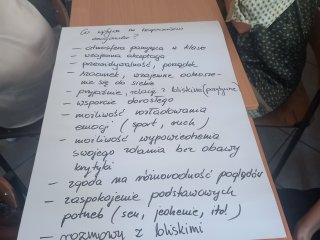 Co wpływa na bezpieczeństwo
emocjonalne?
— atmosfera panująca w klasie
— wzajemna akceptacja
— przewidywalność, porządek
— szacunek, wzajemne odnosze-
nie się do siebie
— przyjaźnie, relacje z bliskimi (pozytywne)
— wsparcie dorosłego
— możliwość rozładowania
emocji (sport, ruch)
— możliwość wypowiedzenia
swojego zdania bez obawy
krytyki
— zgoda na różnorodność poglądów
— zaspokojenie podstawowych
potrzeb (sen, jedzenie, itd.)
— rozmowy z bliskimi